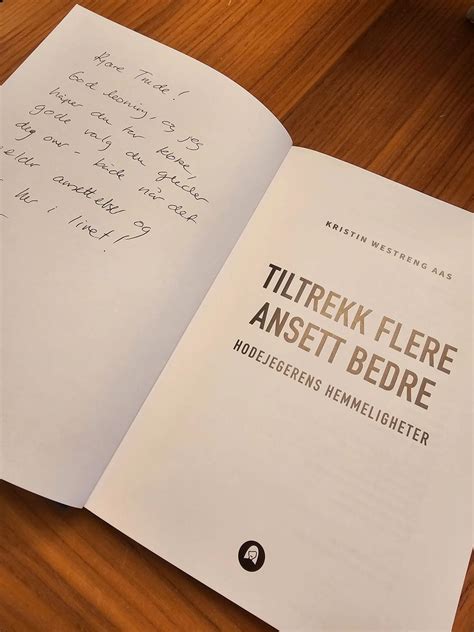 Kjære Trude!
God lesning, og jeg
håper du tar kloke,
gode valg du gleder
deg over - både når det
gjelder ansettelser og
her i livet!
KRISTIN WESTRENG AAS
TILTREKK FLERE
ANSETT BEDRE
HODEJEGERENS HEMMELIGHETER